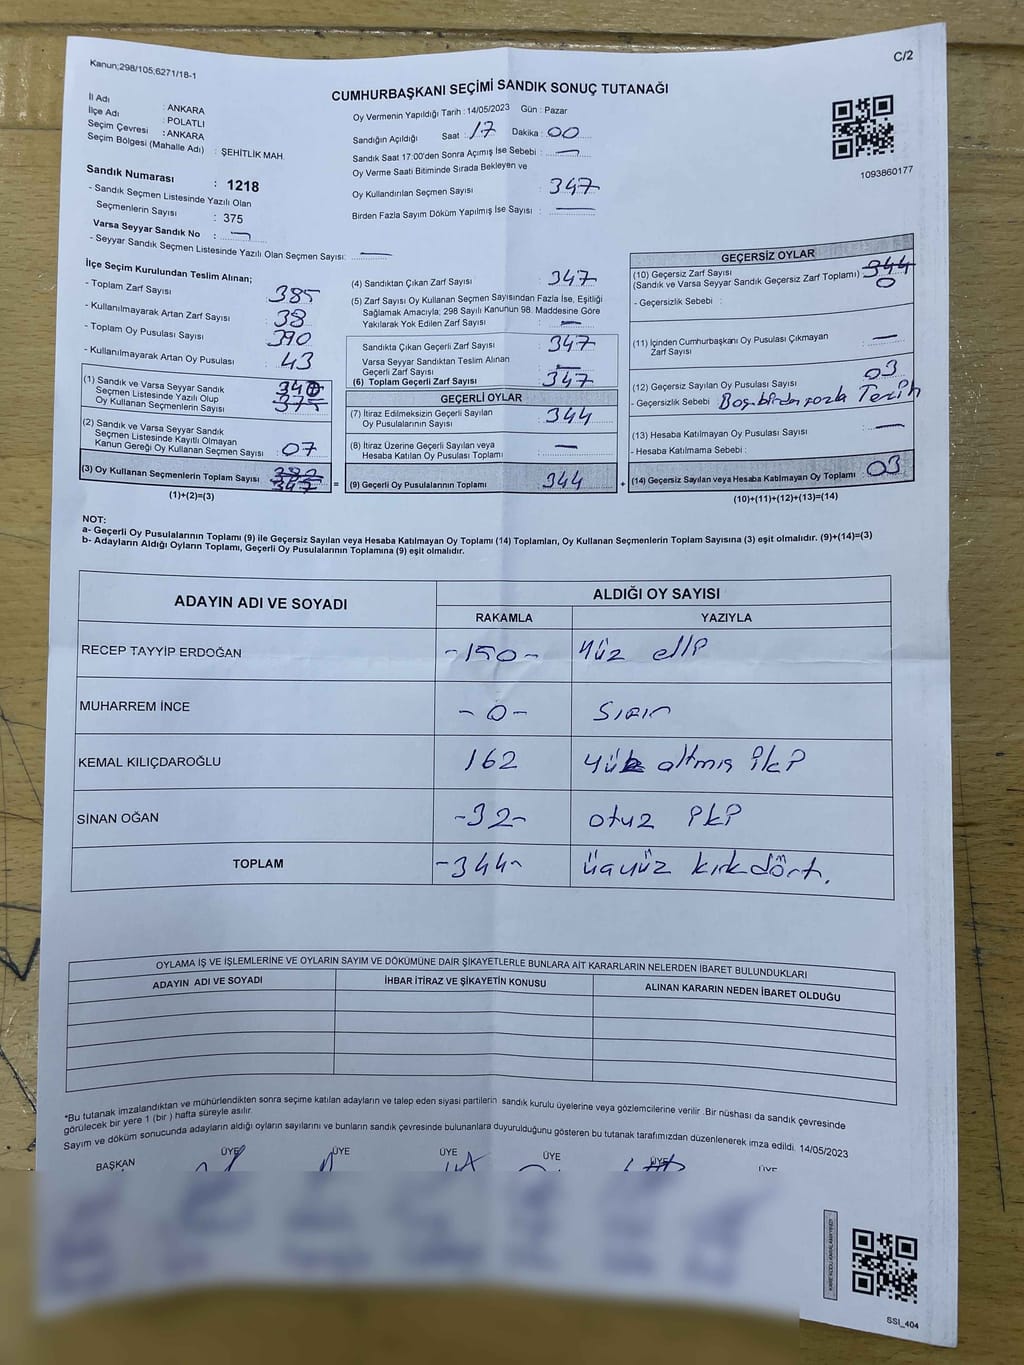 Kanun;298/105;6271/18-1
C/2
CUMHURBAŞKANI SEÇİMİ SANDIK SONUÇ TUTANAĞI
İl Adı : ANKARA
İlçe Adı : POLATLI
Seçim Çevresi : ANKARA
Seçim Bölgesi (Mahalle Adı) : ŞEHİTLİK MAH.
Sandık Numarası : 1218
- Sandık Seçmen Listesinde Yazılı Olan
Seçmenlerin Sayısı : 375
Varsa Seyyar Sandık No : —
- Seyyar Sandık Seçmen Listesinde Yazılı Olan Seçmen Sayısı: —
Oy Vermenin Yapıldığı Tarih : 14/05/2023 Gün : Pazar
Sandığın Açıldığı Saat : 17 Dakika : 00
Sandık Saat 17:00'den Sonra Açımış İse Sebebi : —
Oy Verme Saati Bitiminde Sırada Bekleyen ve
Oy Kullandırılan Seçmen Sayısı : 347
Birden Fazla Sayım Döküm Yapılmış İse Sayısı : —
1093860177
İlçe Seçim Kurulundan Teslim Alınan;
- Toplam Zarf Sayısı : 385
- Kullanılmayarak Artan Zarf Sayısı : 38
- Toplam Oy Pusulası Sayısı : 390
- Kullanılmayarak Artan Oy Pusulası : 43
(1) Sandık ve Varsa Seyyar Sandık
Seçmen Listesinde Yazılı Olup
Oy Kullanan Seçmenlerin Sayısı :
(2) Sandık ve Varsa Seyyar Sandık
Seçmen Listesinde Kayıtlı Olmayan
Kanun Gereği Oy Kullanan Seçmen Sayısı : 07
(3) Oy Kullanan Seçmenlerin Toplam Sayısı 347 =
(1)+(2)=(3)
(4) Sandıktan Çıkan Zarf Sayısı : 347
(5) Zarf Sayısı Oy Kullanan Seçmen Sayısından Fazla İse, Eşitliği
Sağlamak Amacıyla; 298 Sayılı Kanunun 98. Maddesine Göre
Yakılarak Yok Edilen Zarf Sayısı : —
Sandıkta Çıkan Geçerli Zarf Sayısı : 347
Varsa Seyyar Sandıktan Teslim Alınan
Geçerli Zarf Sayısı : —
(6) Toplam Geçerli Zarf Sayısı : 347
GEÇERLİ OYLAR
(7) İtiraz Edilmeksizin Geçerli Sayılan
Oy Pusulalarının Sayısı : 344
(8) İtiraz Üzerine Geçerli Sayılan veya
Hesaba Katılan Oy Pusulası Toplamı : —
(9) Geçerli Oy Pusulalarının Toplamı : 344 +
GEÇERSİZ OYLAR
(10) Geçersiz Zarf Sayısı : 344
(Sandık ve Varsa Seyyar Sandık Geçersiz Zarf Toplamı) 0
- Geçersizlik Sebebi :
(11) İçinden Cumhurbaşkanı Oy Pusulası Çıkmayan
Zarf Sayısı : —
(12) Geçersiz Sayılan Oy Pusulası Sayısı : 03
- Geçersizlik Sebebi Boş. birden fazla Tercih
(13) Hesaba Katılmayan Oy Pusulası Sayısı : —
- Hesaba Katılmama Sebebi :
(14) Geçersiz Sayılan veya Hesaba Katılmayan Oy Toplamı : 03
(10)+(11)+(12)+(13)=(14)
NOT:
a- Geçerli Oy Pusulalarının Toplamı (9) ile Geçersiz Sayılan veya Hesaba Katılmayan Oy Toplamı (14) Toplamları, Oy Kullanan Seçmenlerin Toplam Sayısına (3) eşit olmalıdır. (9)+(14)=(3)
b- Adayların Aldığı Oyların Toplamı, Geçerli Oy Pusulalarının Toplamına (9) eşit olmalıdır.
ADAYIN ADI VE SOYADI
ALDIĞI OY SAYISI
RAKAMLA YAZIYLA
RECEP TAYYİP ERDOĞAN -150- Yüz elli
MUHARREM İNCE -0- Sıfır
KEMAL KILIÇDAROĞLU 162 Yüz altmış iki
SİNAN OĞAN -32- otuz iki
TOPLAM -344- üçyüz kırkdört.
OYLAMA İŞ VE İŞLEMLERİNE VE OYLARIN SAYIM VE DÖKÜMÜNE DAİR ŞİKAYETLERLE BUNLARA AİT KARARLARIN NELERDEN İBARET BULUNDUKLARI
ADAYIN ADI VE SOYADI İHBAR İTİRAZ VE ŞİKAYETİN KONUSU ALINAN KARARIN NEDEN İBARET OLDUĞU
*Bu tutanak imzalandıktan ve mühürlendikten sonra seçime katılan adayların ve talep eden siyasi partilerin sandık kurulu üyelerine veya gözlemcilerine verilir. Bir nüshası da sandık çevresinde
görülecek bir yere 1 (bir ) hafta süreyle asılır.
Sayım ve döküm sonucunda adayların aldığı oyların sayılarını ve bunların sandık çevresinde bulunanlara duyurulduğunu gösteren bu tutanak tarafımızdan düzenlenerek imza edildi. 14/05/2023
BAŞKAN ÜYE ÜYE ÜYE ÜYE ÜYE ÜYE
SSI_404